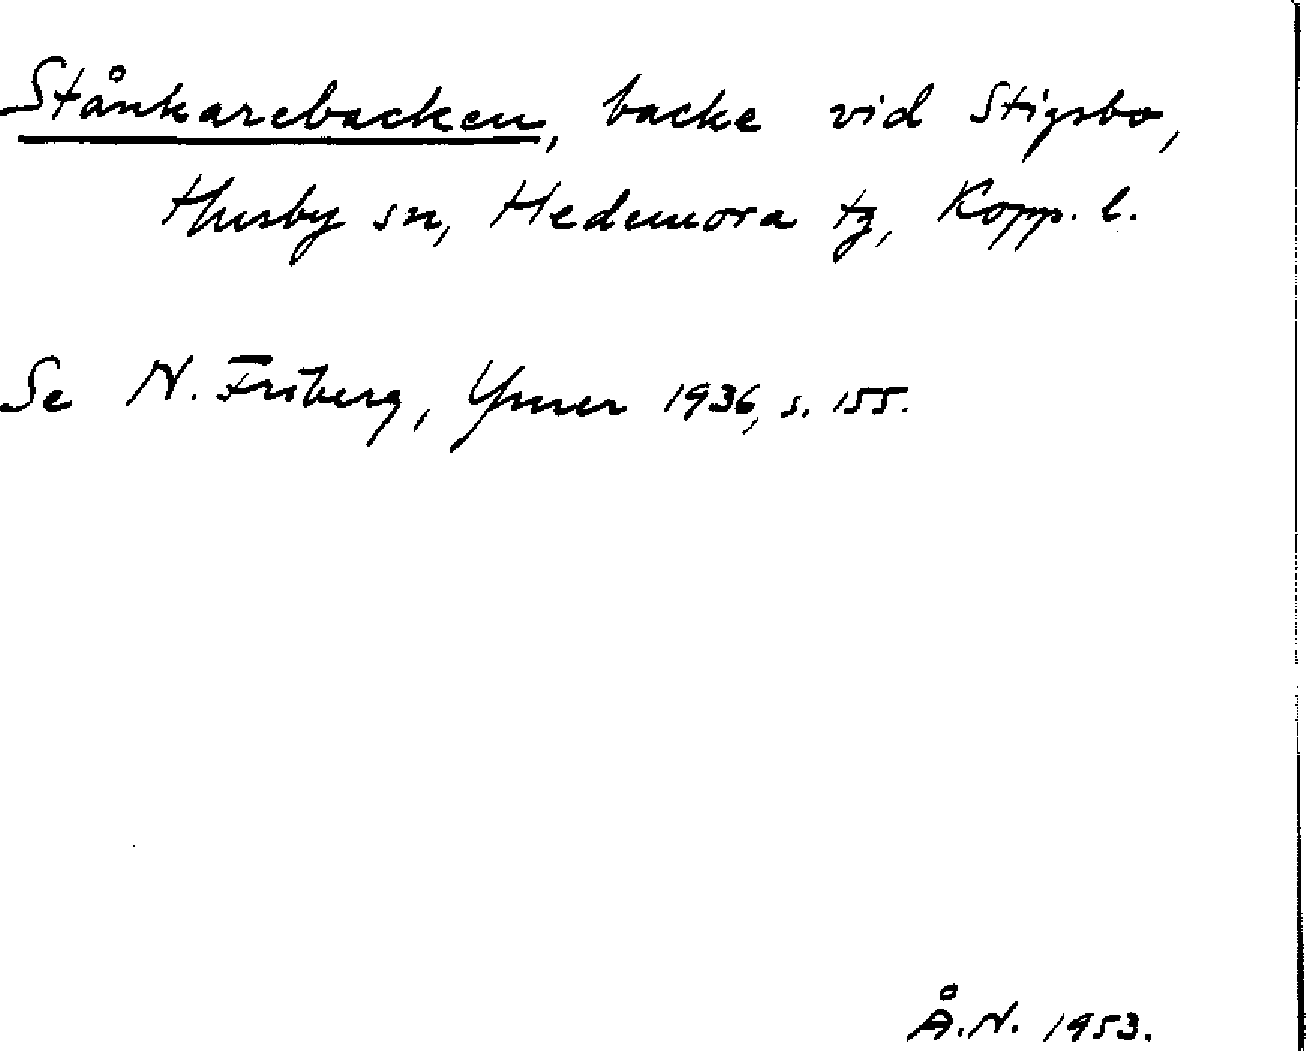 Stånkarebacken, backe vid Stigsbo,
Husby sn, Hedemora tg, Kopp. l.
Se N. Friberg, Ymer 1936, s. 155.
Å.N. 1953.